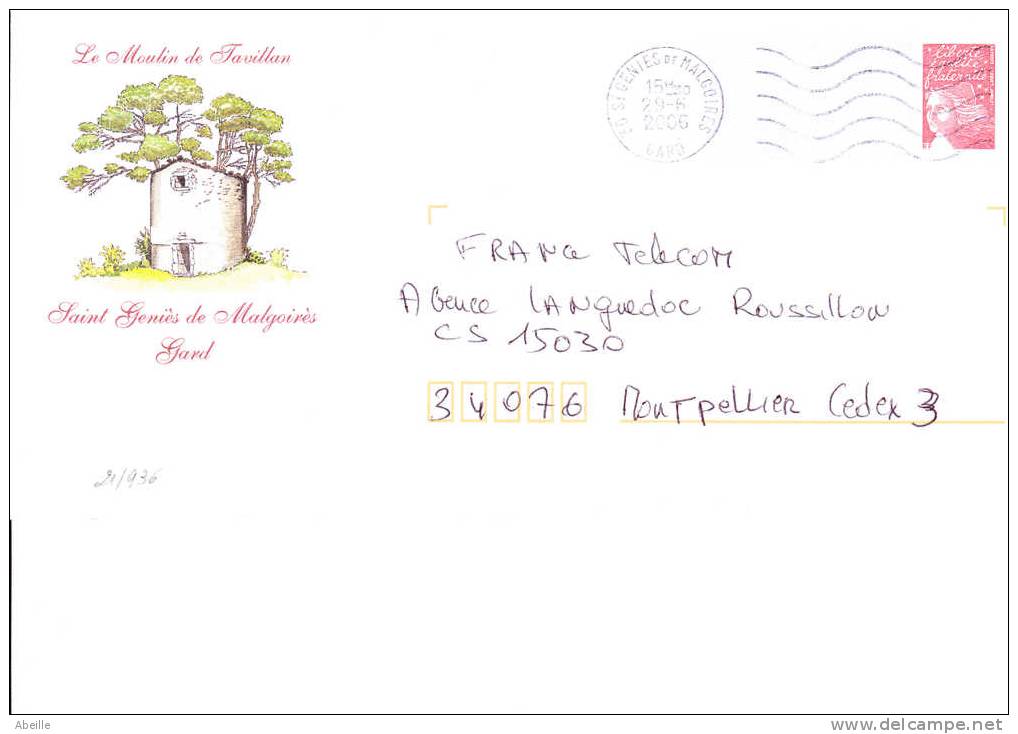 Le Moulin de Tavillan
Saint Geniès de Malgoirès
Gard
30 ST GENIES DE MALGOIRES
15H
29-6
2006
GARD
liberté
égalité
fraternité
FRANCE Telecom
Agence LANguedoc Roussillon
CS 15030
34076 Montpellier Cedex 3
21/936
Abeille
www.delcampe.net